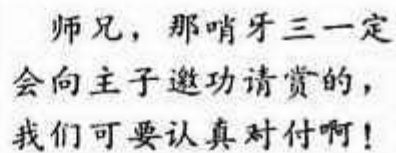 师兄，那哨牙三一定
会向主子邀功请赏的，
我们可要认真对付啊！